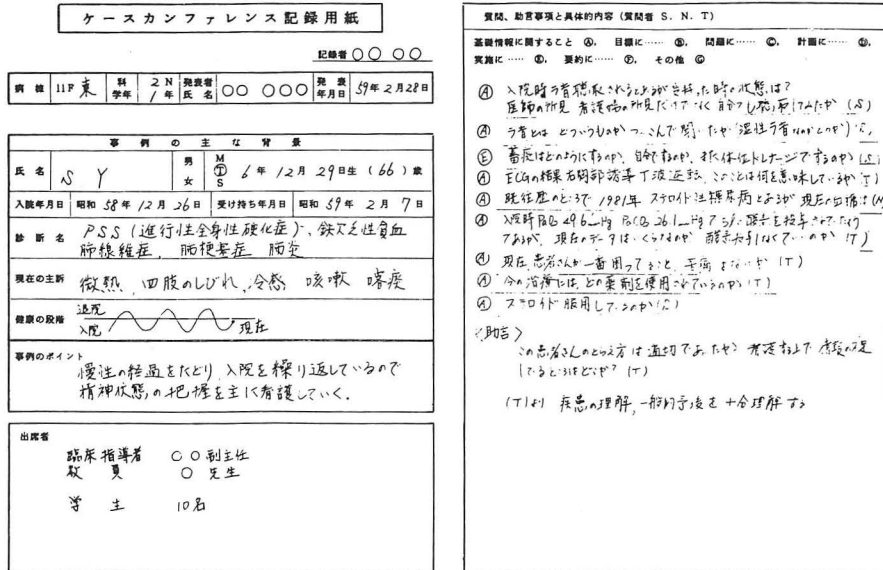 ケースカンファレンス記録用紙
記録者 ○○ ○○
病棟 11F東 科学年 2N 1年 発表者氏名 ○○ ○○○ 発表年月日 59年2月28日
事例の主な背景
氏名 S Y 男 女 M T S 6年12月29日生(66)歳
入院年月日 昭和58年12月26日 受け持ち年月日 昭和59年2月7日
診断名 PSS(進行性全身性硬化症)、鉄欠乏性貧血
肺線維症、肺梗塞症 肺炎
現在の主訴 微熱、四肢のしびれ、冷感 咳嗽 喀痰
健康の段階 退院
入院 現在
事例のポイント
慢性の経過をたどり、入院を繰り返しているので
精神状態の把握を主に看護していく。
出席者
臨床指導者 ○○副主任
教員 ○先生
学生 10名
質問、助言事項と具体的内容(質問者 S.N.T)
基礎情報に関すること Ⓐ、目標に…… Ⓑ、問題に…… Ⓒ、計画に…… Ⓓ、
実施に…… Ⓔ、要約に…… Ⓕ、その他 Ⓖ
Ⓐ 入院時ラ音聴取されるとあるが 受持った時の状態は?
医師の所見 看護婦の所見だけでなく自分でも聴取してみたか (S)
Ⓐ ラ音とは どういうものか つっこんで聞いたか (湿性ラ音なのかとか)
Ⓔ 蓄尿はどのようにするのか、自分でするのか、また体位ドレナージでするのか (S)
Ⓐ ECGの結果右胸部誘導T波逆転、このことは何を意味しているか (T)
Ⓐ 既往歴のところで 1981年 ステロイド性糖尿病とあるが 現在の血糖は (N)
Ⓐ 入院時 PaO₂ 49.6 mmHg PaCO₂ 26.1 mmHg 酸素を投与されていた
であるが、現在のデータはいくらなのか 酸素 なくていいのか (T)
Ⓐ 現在、患者さんが一番困ってること、苦痛はないか (T)
Ⓐ 今の治療には、どの薬剤を使用されているのか (T)
Ⓐ ステロイド服用しているのか
<助言>
この患者さんのとらえ方は適切であったか? 看護上で
しているところはどこか? (T)
(T)より 疾患の理解、一般的予後を十分理解する